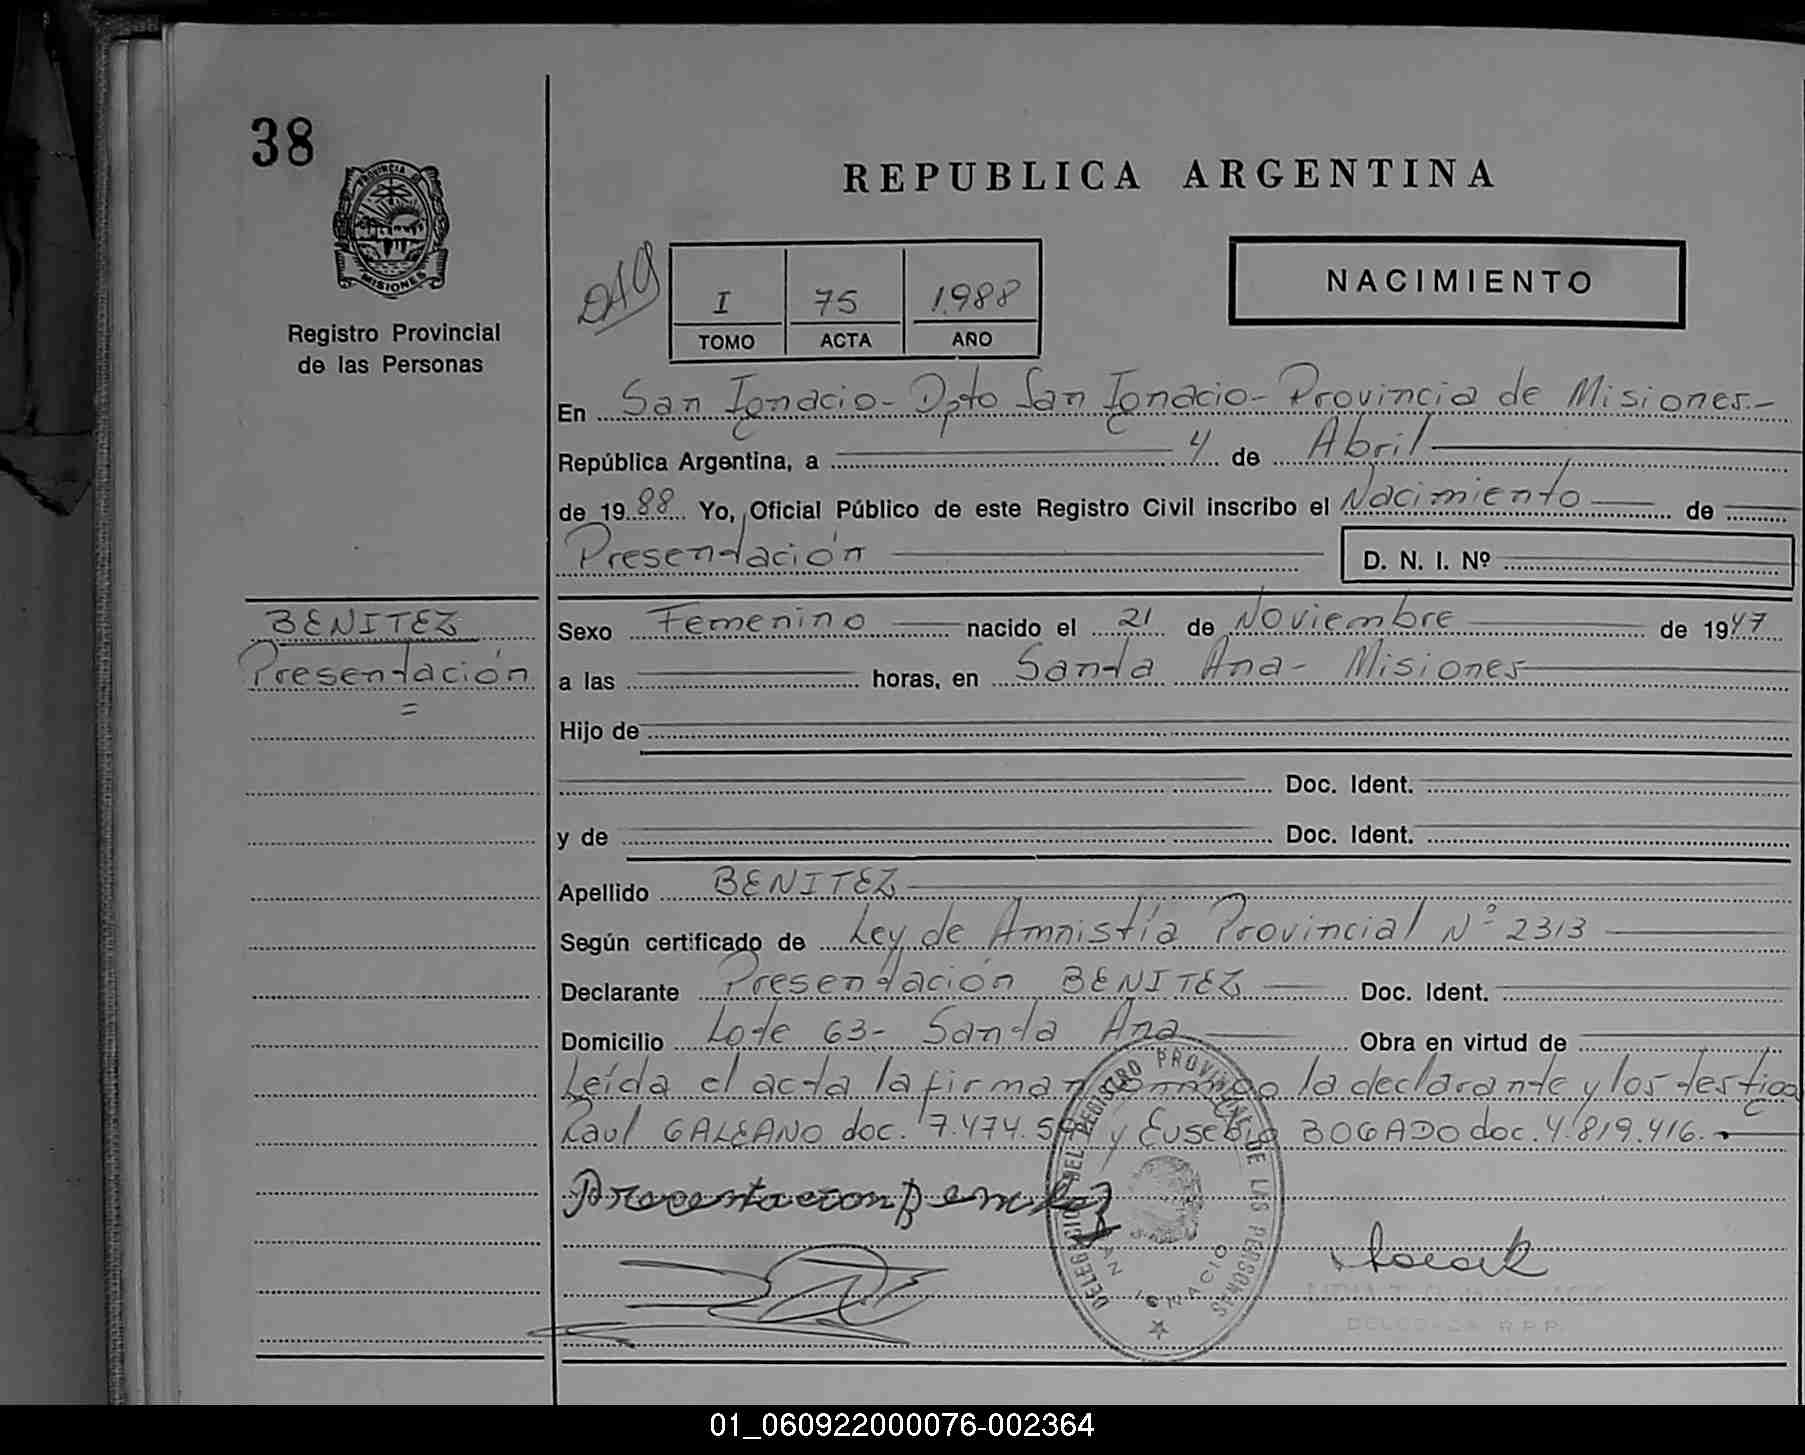 38
PROVINCIA DE
MISIONES
Registro Provincial
de las Personas
REPUBLICA ARGENTINA
NACIMIENTO
I 75 1988
TOMO ACTA AÑO
En San Ignacio - Dpto San Ignacio - Provincia de Misiones.-
República Argentina, a 4 de Abril
de 1988 Yo, Oficial Público de este Registro Civil inscribo el Nacimiento de
Presentación D. N. I. Nº
BENITEZ
Presentación
=
Sexo Femenino nacido el 21 de Noviembre de 1947
a las horas, en Santa Ana - Misiones
Hijo de
Doc. Ident.
y de Doc. Ident.
Apellido BENITEZ
Según certificado de Ley de Amnistía Provincial Nº 2313
Declarante Presentación BENITEZ Doc. Ident.
Domicilio Lote 63 - Santa Ana Obra en virtud de
Leída el acta la firman conmigo la declarante y los testigos
Raul GALEANO doc. 7.474. y Eusebio BOGADO doc. 4.819.416.-
Presentacion Benitez
DELEGACION DEL REGISTRO PROVINCIAL DE LAS PERSONAS
SAN IGNACIO
R.P.P.
01_060922000076-002364